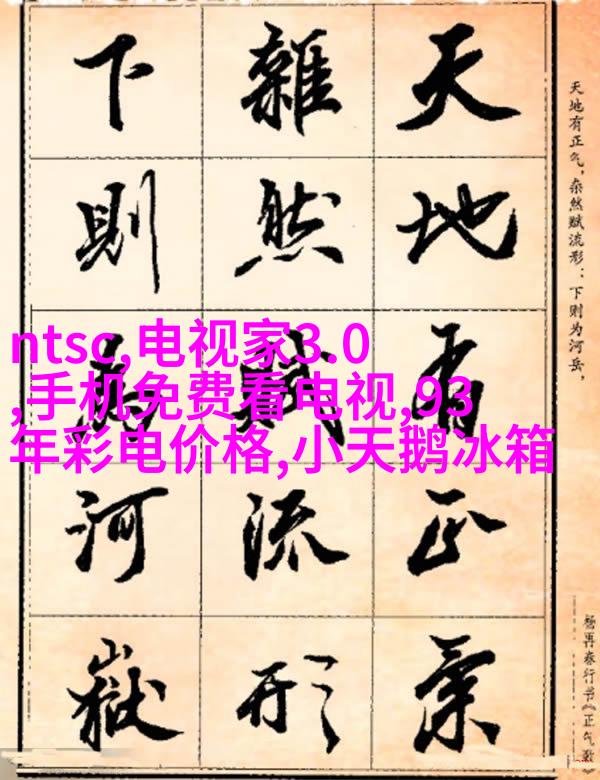 天地有正氣
雜然賦流形
下則為河嶽
天地有正气，杂然赋流形：下则为河岳，
杨再春行书《正气歌》
ntsc,电视家3.0
,手机免费看电视,93
年彩电价格,小天鹅冰箱